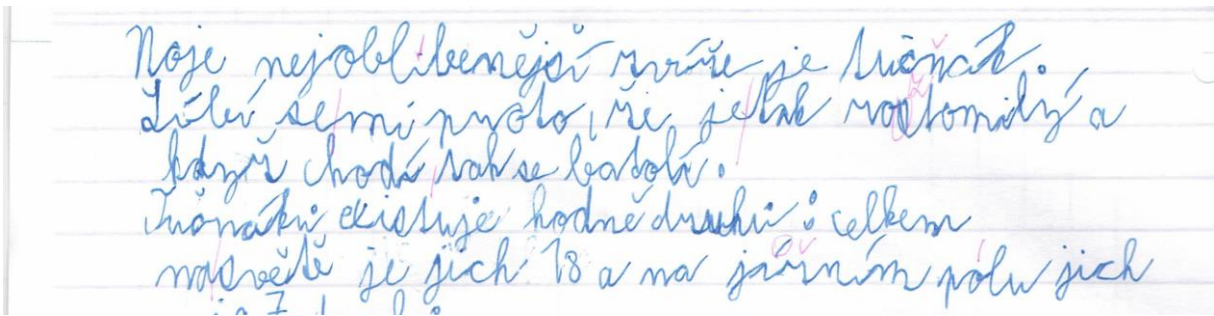 Moje nejoblíbenější zvíře je tučňák.
Líbí semi proto, že jetak roztomilý a
když chodí taksebatolí.
Tučnáků existuje hodnědruhů: celkem
nasvětě je jich 18 a na jižním pólu jich
je 7 druhů